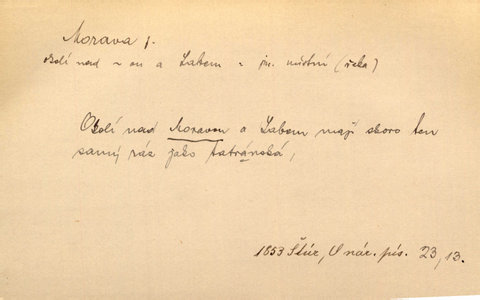 Morava f.
okolí nad ~ou a Labem = jm. místní (řeka)
Okolí nad Moravou a Labem mají skoro ten
samý ráz jako tatránská,
1853 Štúr, O nár. pís. 23,13.